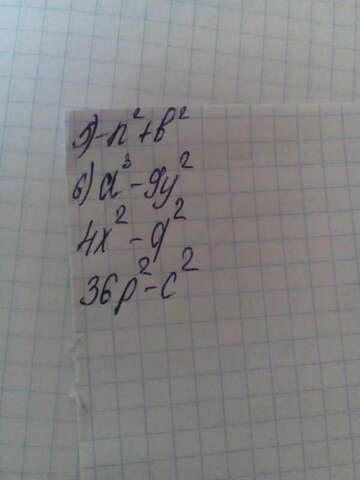 5) -n² + b²
6) a³ - 9y²
4x² - q²
36p² - c²